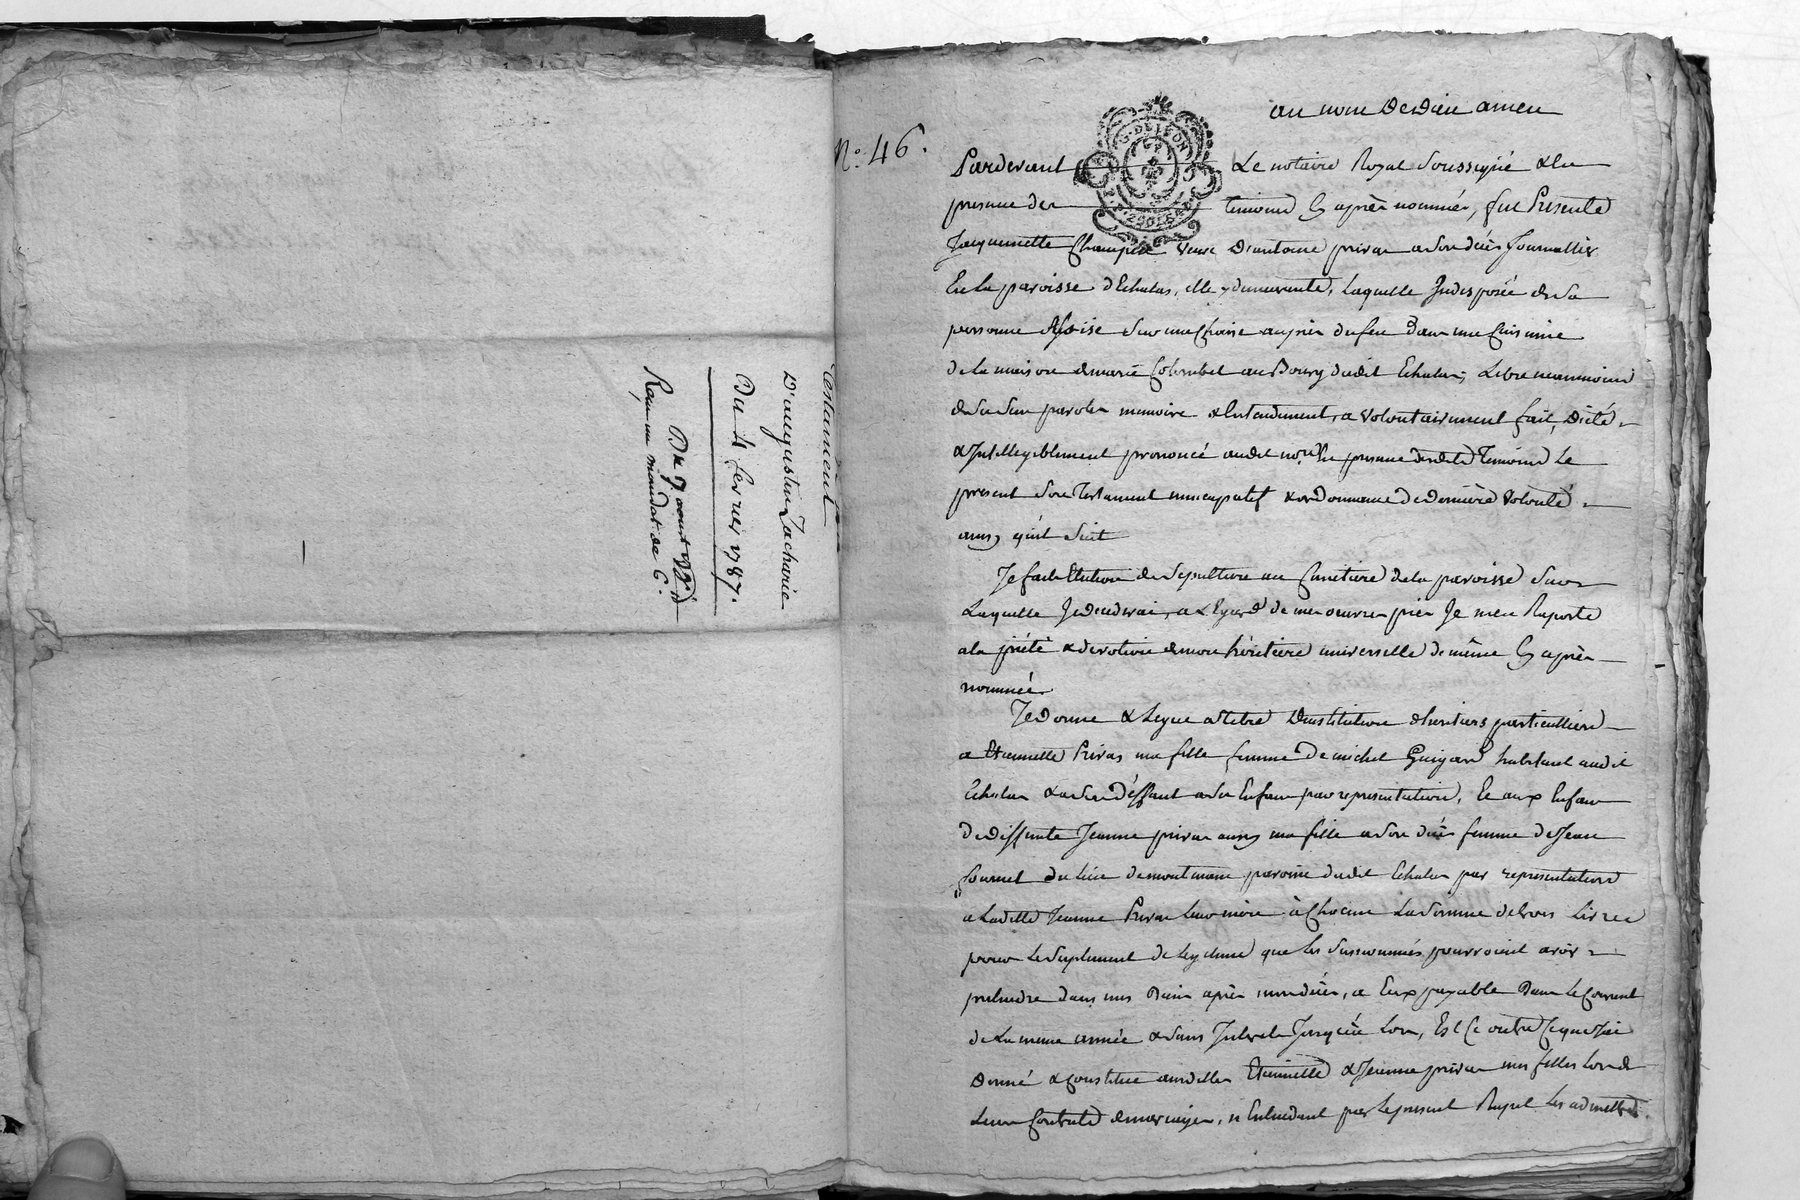 Testament
D'augustin Zacharie
Du 4 fevrier 1787.
Du 7 aout
Rapp un mandat de C.
N.º 46.
au nom De Dieu amen
G. DE LYON
Pardevant Le notaire Royal Soussigné & en
presence des temoins Cy après nommés, fut Presente
Jacquemette veuve D'antoine privas a son décès Journallier
En La paroisse d'Echalas, elle y demeurante, Laquelle Indisposée de sa
personne Assise sur une Chaise auprès du feu Dans une Cuisine
de La maison de marie Colombet au Bourg dudit Echalas, Libre neanmoins
de ses sens parole memoire & Entendement, a volontairement fait, Dicté
& Intelligiblement prononcé audit no.re En presence desdits Temoins Le
present son Testament nuncupatif & ordonnance de derniere volonté
ainsy qu'il suit
Je fais Election de sepulture au Cimetiere de la paroisse sur
Laquelle Je decederai, a L'Egard de mes oeuvres pies Je m'en Raporte
a la piété & devotion de mon héritiere universelle de même Cy après
nommée
Je Donne & Legue a titre D'institution d'heritiers particulliers
a Etiennette Privas ma fille femme De michel Guigard habitant audit
Echalas & a son déffaut a ses Enfans par representation, Et aux Enfans
de deffunte Jeanne privas aussy ma fille a son décès femme de Jean
Journet du Lieu de paroisse dudit Echalas par representation
a Ladite Jeanne Privas Leur mère à Chacun La Somme de trois Livres
pour Le Suplement de Legitime que Les Susnommés pourroient avoir
pretendre dans mes Biens après mon décès, a Eux payable Dans Le Courant
de La meme année & sans Interets Jusqu'à Lors, Et Ce outre Ce que J'ai
Donné & Constitué auxdittes Etiennette & Jeanne privas mes filles Lors de
Leurs Contrats de mariage, n'Entendant par Le present Rapel Les admettre